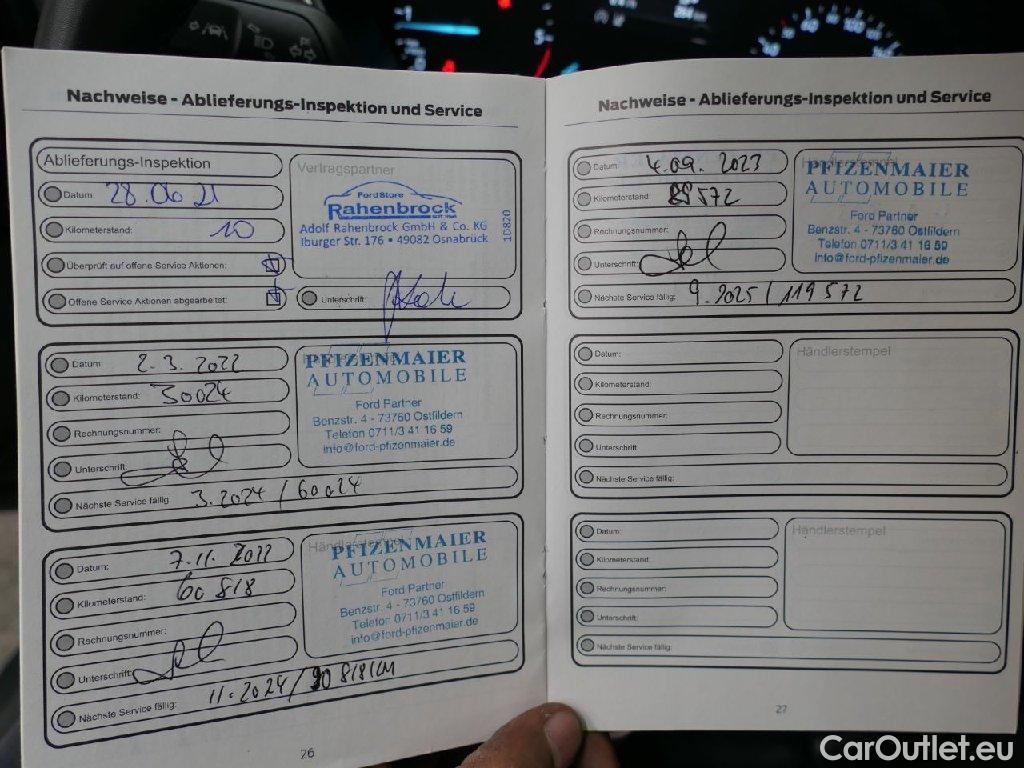 Nachweise - Ablieferungs-Inspektion und Service
Ablieferungs-Inspektion
Datum: 28.06.21
Kilometerstand: 10
Überprüft auf offene Service Aktionen:
Offene Service Aktionen abgearbeitet:
Vertragspartner
FordStore
Rahenbrock
Adolf Rahenbrock GmbH & Co. KG
Iburger Str. 176 • 49082 Osnabrück
10820
Unterschrift:
Datum: 2.3.2022
Kilometerstand: 30024
Rechnungsnummer:
Unterschrift:
Nächste Service fällig: 3.2024 / 60024
PFIZENMAIER
AUTOMOBILE
Ford Partner
Benzstr. 4 - 73760 Ostfildern
Telefon 0711/3 41 16 59
info@ford-pfizenmaier.de
Datum: 7.11.2022
Kilometerstand: 60818
Rechnungsnummer:
Unterschrift:
Nächste Service fällig: 11.2024 / 90818 KM
PFIZENMAIER
AUTOMOBILE
Ford Partner
Benzstr. 4 - 73760 Ostfildern
Telefon 0711/3 41 16 59
info@ford-pfizenmaier.de
26
Nachweise - Ablieferungs-Inspektion und Service
Datum: 4.09.2023
Kilometerstand: 89572
Rechnungsnummer:
Unterschrift:
Nächste Service fällig: 9.2025 / 119572
PFIZENMAIER
AUTOMOBILE
Ford Partner
Benzstr. 4 - 73760 Ostfildern
Telefon 0711/3 41 16 59
info@ford-pfizenmaier.de
Datum:
Kilometerstand:
Rechnungsnummer:
Unterschrift:
Nächste Service fällig:
Händlerstempel
Datum:
Kilometerstand:
Rechnungsnummer:
Unterschrift:
Nächste Service fällig:
Händlerstempel
27
CarOutlet.eu